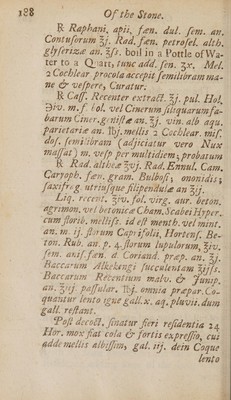 188 Of the Stone.
℞ Raphani, apii, fæn. dul. sem. an.
Contusorum ʒj. Rad. fæn. petrosel. alth.
glyserizæ an. ʒſs. boil in a Pottle of Wa-
ter to a Quart, tunc add. sen. ʒx. Mel.
2 Cochlear procola accepit semilibram ma-
ne & vespere, Curatur.
℞ Cass. Recenter extract. ʒj. pul. Hol.
m. f. bol. vel Cinerum siliquarum fa-
barum Ciner. genistæ an. ʒj. vin. alb. aqu.
parietariæ an. ℔j. mellis 2 Cochlear. mis.
dos. semilibram (adjiciatur vero Nux
massat) m. vesp per multidiem; probatum
℞ Rad. altheæ Rad. Ennul. Cam.
Caryoph. fæn. gram. Bulbos; ononidis;
saxifrag. utriusque filipendulæ an ʒj.
Liq. recent. ʒiv. fol. virg. aur. beton.
agrimon. vel botonicæ Cham. Scabei Hyper.
cum florib. mellis. id est menth. vel mint.
an. m. ij. florum Caprifolii, Hortens. Be-
ton. Rub. an. p. 4. florum lupulorum, ʒiv.
sem. anis. fæn. d Coriand. præp. an. ʒj.
Baccarum Alkekungi succulentam ʒijſs.
Baccarum Recentium malv. & Junip.
an. ʒvj. passular. ℔j. omnia præpar. Co-
quantur lento igne gall. x. aq. pluvii. dum
gall. restant.
Post decoct. sinatur fieri residentia 24
Hor. mox fiat cola & fortis expressio, cui
adde mellis albissim; gal. iij. dein Coque
lento